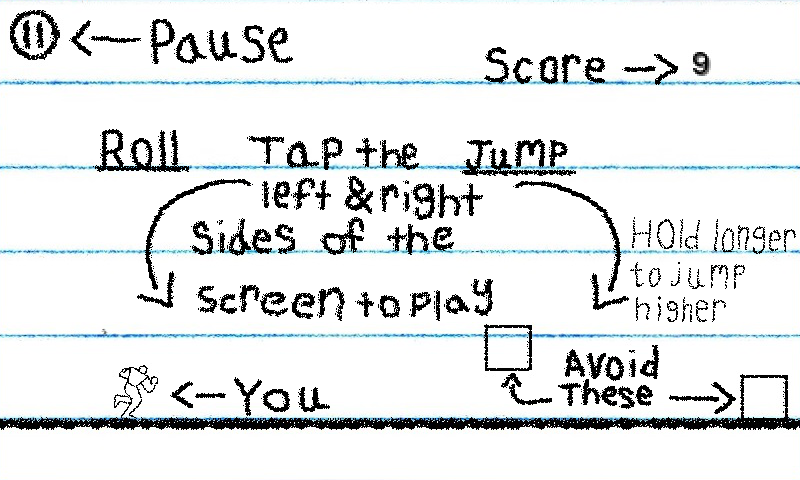 Pause
Score 9
Roll
Tap the
left & right
sides of the
screen to play
Jump
Hold longer
to jump
higher
You
Avoid
These